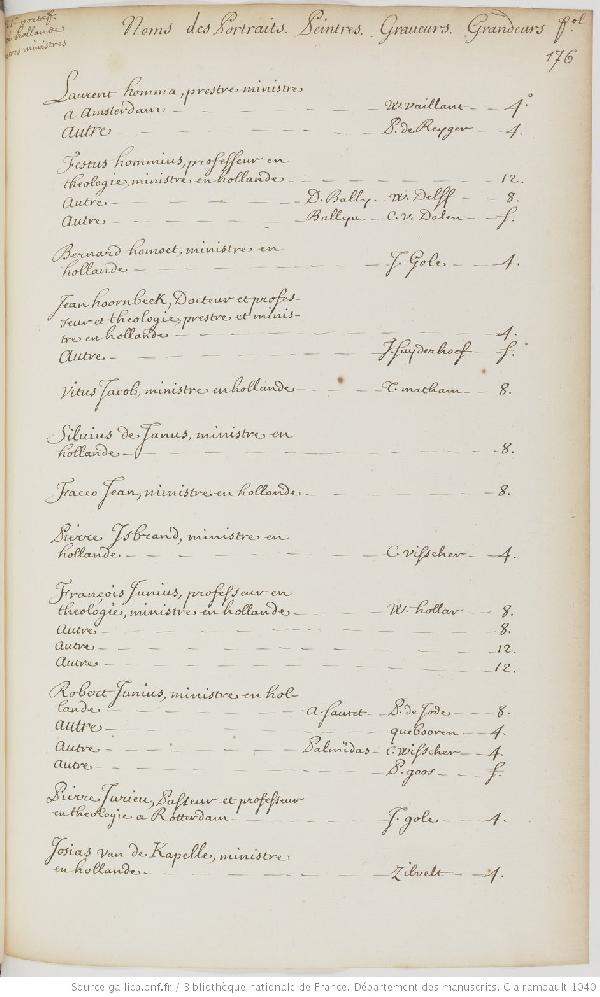 Noms des Portraits. Peintres. Graveurs. Grandeurs fol
176
de hollande
ministres
Laurent homma, prestre ministre
a Amsterdam W. Vaillant 4°
Autre P. de Reyger 4.
Festus hommius, professeur en
theologie, ministre en hollande 12.
Autre D. Bally. W. Delff 8.
Autre Ballyu C. v. Dalen f.
Bernard homoet, ministre en
hollande J. Gole 4.
Jean hoornbeek, Docteur et profes-
seur et theologie, prestre et minis-
tre en hollande 4.
Autre J. Suyderhoef f.
Vitus Jacob, ministre en hollande T. matham 8.
Siluius de Janus, ministre en
hollande 8.
Jacco Jean, ministre en hollande 8.
Pierre Isbrand, ministre en
hollande. C. Visscher 4.
François Junius, professeur en
theologie, ministre en hollande W. hollar 8.
Autre 8.
Autre 12.
Autre 12.
Robert Junius, ministre en hol-
lande P. de Jode 8.
Autre quebooren 4.
Autre Palmidas C. Wisscher 4.
Autre P. goos f.
Pierre Jurieu, Pasteur et professeur
en theologie a Rotterdam J. gole 4.
Josias van de Kapelle, ministre
en hollande. Zilvelt 4.
Source gallica.bnf.fr / Bibliothèque nationale de France. Département des manuscrits. Clairambault 1040